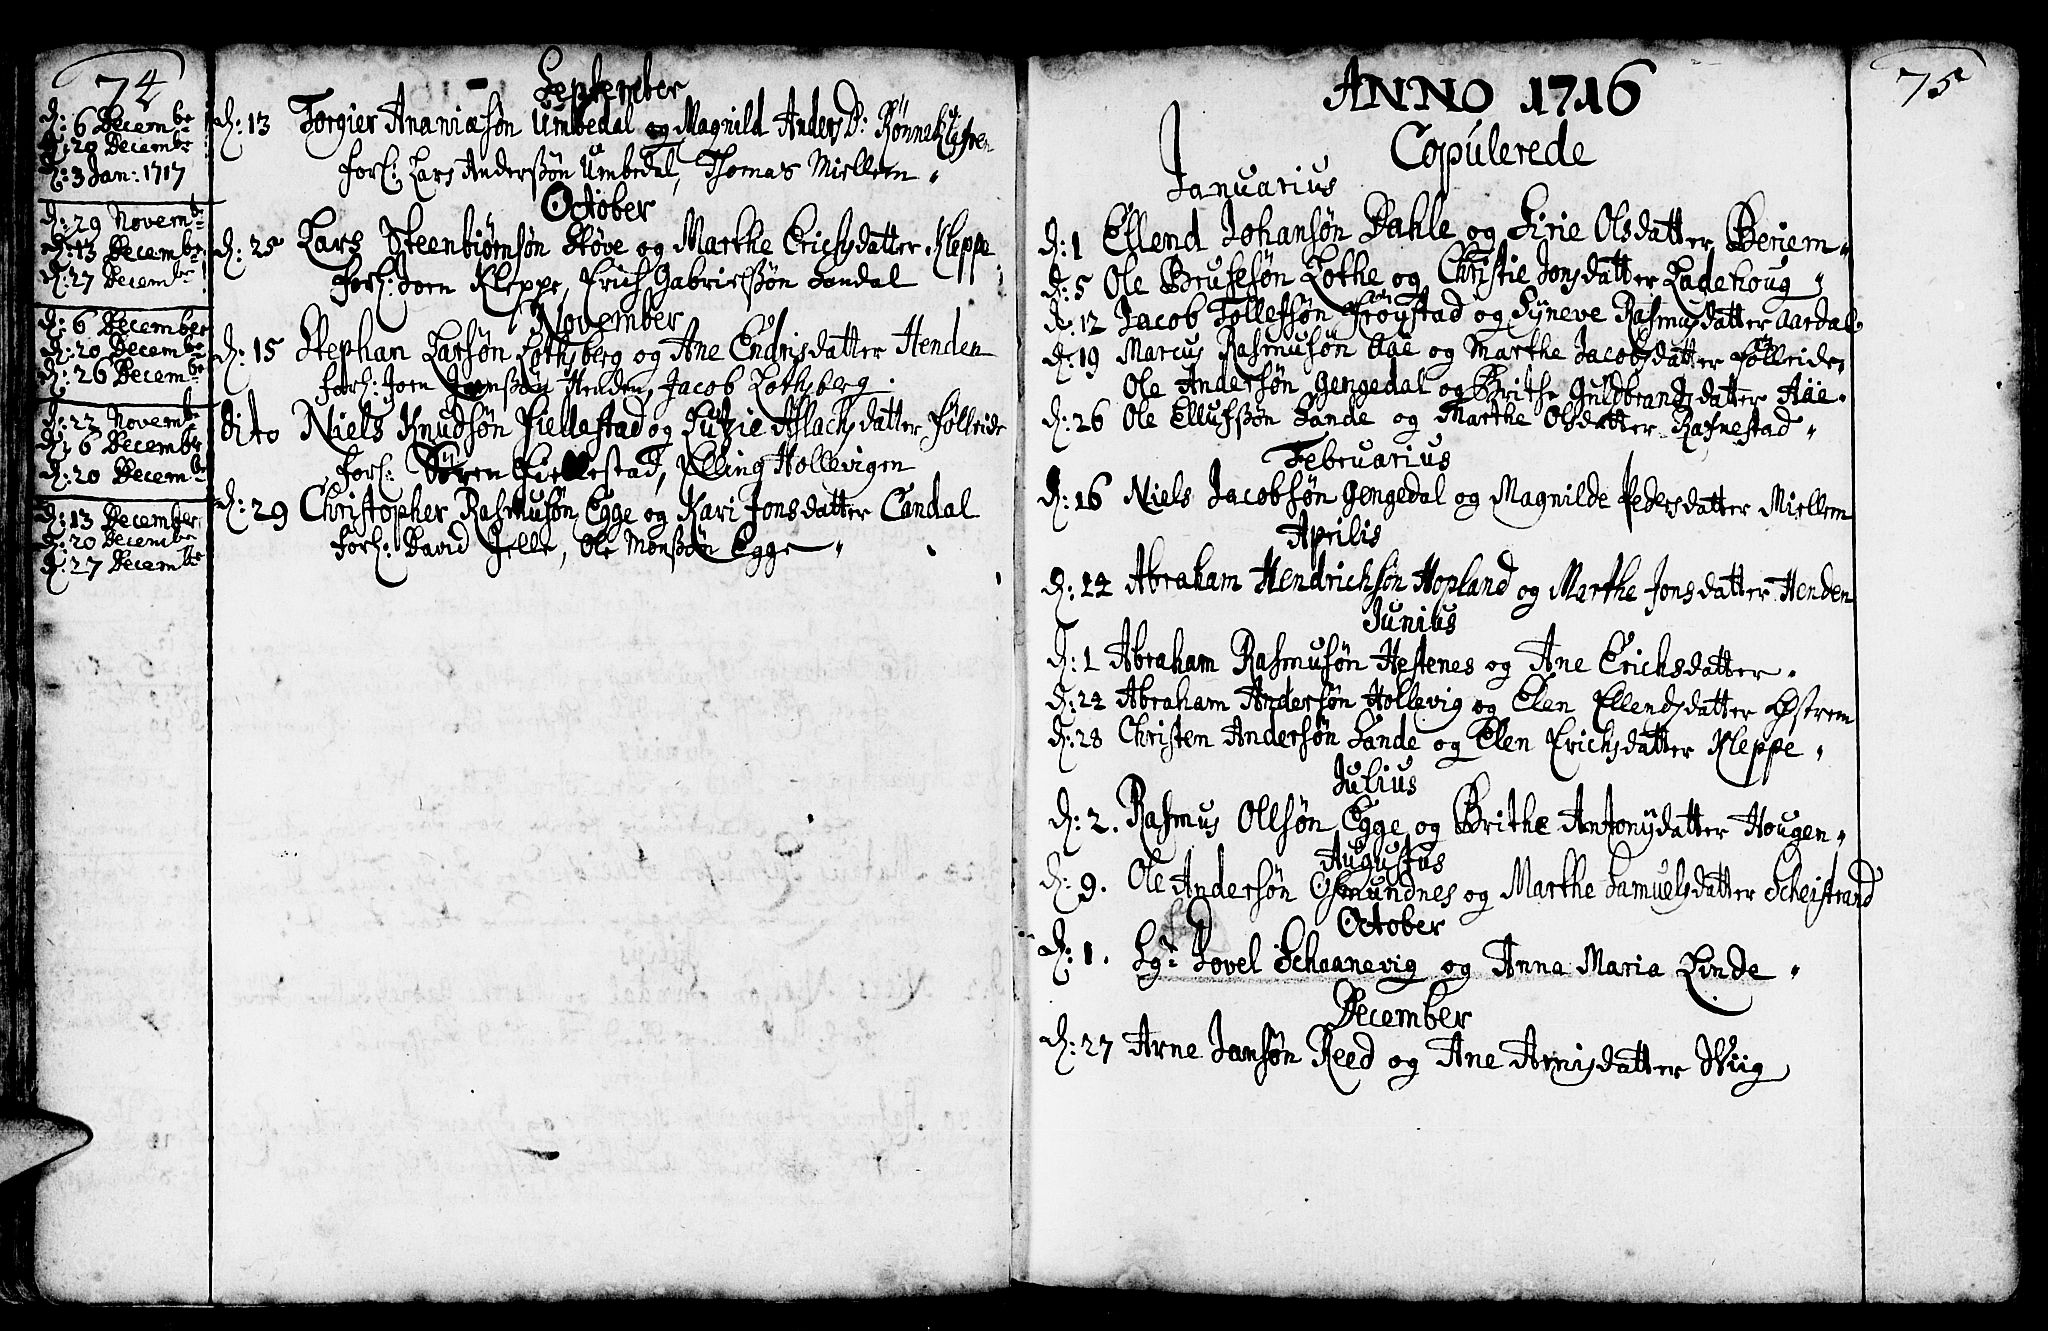 74
d: 6 Decembr
d: 20 Decembr
d: 3 Jan: 1717
September
d: 13 Torgier Ananiasøn Umbedal og Magnild Anders D:
forl: Lars Anderssøn Umbedal, Thomas Miellem
d: 29 Novemb
d: 13 Decembr
d: 27 Decembr
October
d: 25 Lars Steenbiørnsøn Støve og Marthe Erichsdatter Kleppe
forl: Joen Kleppe, Erich Gabrielssøn Sandal
d: 6 December
d: 20 Decembr
d: 26 Decembr
November
d: 15 Stephan Larsøn Lothsberg og Ane Endrisdatter Henden
forl: Joen Henden, Jacob Lothsberg
d: 22 Novemb
d: 6 Decembr
d: 20 Decembr
dito Niels Knudsøn Fiellestad og Aslachsdatter Følleide
forl: Søren Fiellestad, Elling Hollevigen
d: 13 December
d: 20 Decembr
d: 27 Decembr
d: 29 Christopher Rasmusøn Egge og Kari Jonsdatter Candal
forl: David Gelle, Ole Monssøn Egge
75
ANNO 1716
Copulerede
Januarius
d: 1 Ellend Johansøn Dahle og Sirie Olsdatter Beriem
d: 5 Ole Brusesøn Lothe og Christie Jonsdatter Ladehoug
d: 12 Jacob Tollefsøn Frøystad og Syneve Rasmusdatter Aardal
d: 19 Marcus Rasmusøn Aae og Marthe Jacobsdatter Følleide
Ole Andersøn Gengedal og Brithe Guldbrandsdatter Aae
d: 26 Ole Ellufssøn Sande og Marthe Olsdatter Rafnestad
Februarius
d: 16 Niels Jacobsøn Gengedal og Magnilde Pedersdatter Miellem
Aprilis
d: 22 Abraham Hendrichsøn Hopland og Marthe Jonsdatter Henden
Junius
d: 1 Abraham Rasmusøn Hestenes og Ane Erichsdatter
d: 22 Abraham Andersøn Hollevig og Elen Ellendsdatter Østrem
d: 28 Christen Andersøn Sande og Elen Erichsdatter Kleppe
Julius
d: 2. Rasmus Olesøn Egge og Brithe Antonijdatter Hougen
Augustus
d: 9. Ole Andersøn Osmundnes og Marthe Samuelsdatter Scheistrand
October
d: 1. Sgr Povel Schaanevig og Anna Maria Linde
December
d: 27 Arne Jansøn Reed og Ane Arnisdatter Wiig